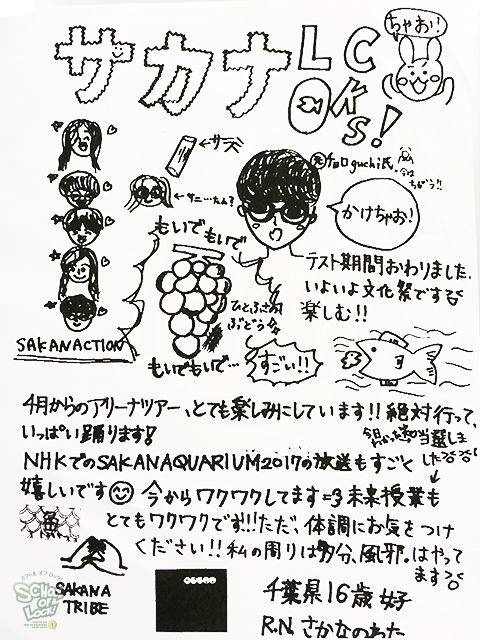 サカナLOCKS!
ちゃお!
←サニーズ
←サニー…たん?
もいでもいで
ひとふさの
ぶどう
もいでもいで…
すごい!!
かけちゃお!
今は
ちがう!!
テスト期間おわりました。
いよいよ文化祭です
楽しむ!!
SAKANACTION
4月からのアリーナツアー、とても楽しみにしています!!絶対行って、
いっぱい踊ります!
当選しました
NHKでのSAKANAQUARIUM2017の放送もすごく
嬉しいです 今からワクワクしてます=3 未来授業も
とてもワクワクです!!!ただ、体調にお気をつけ
ください!! 私の周りは多分、風邪。はやって
ます
魚
SAKANA
TRIBE
千葉県16歳
R.N.さかなのわた
スクール オブ ロック!
SCHOOL OF LOCK!